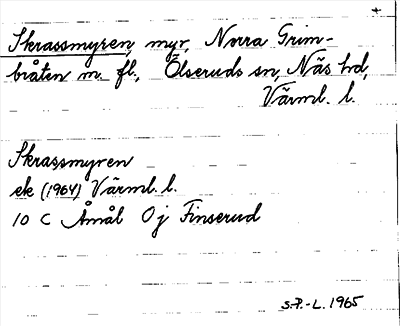 Skrassmyren, myr, Norra Grim-
bråten m. fl., Ölseruds sn, Näs hd,
Värml. l.
Skrassmyren
ek (1964) Värml. l.
10 C Åmål Oj Finserud
S.P.-L. 1965